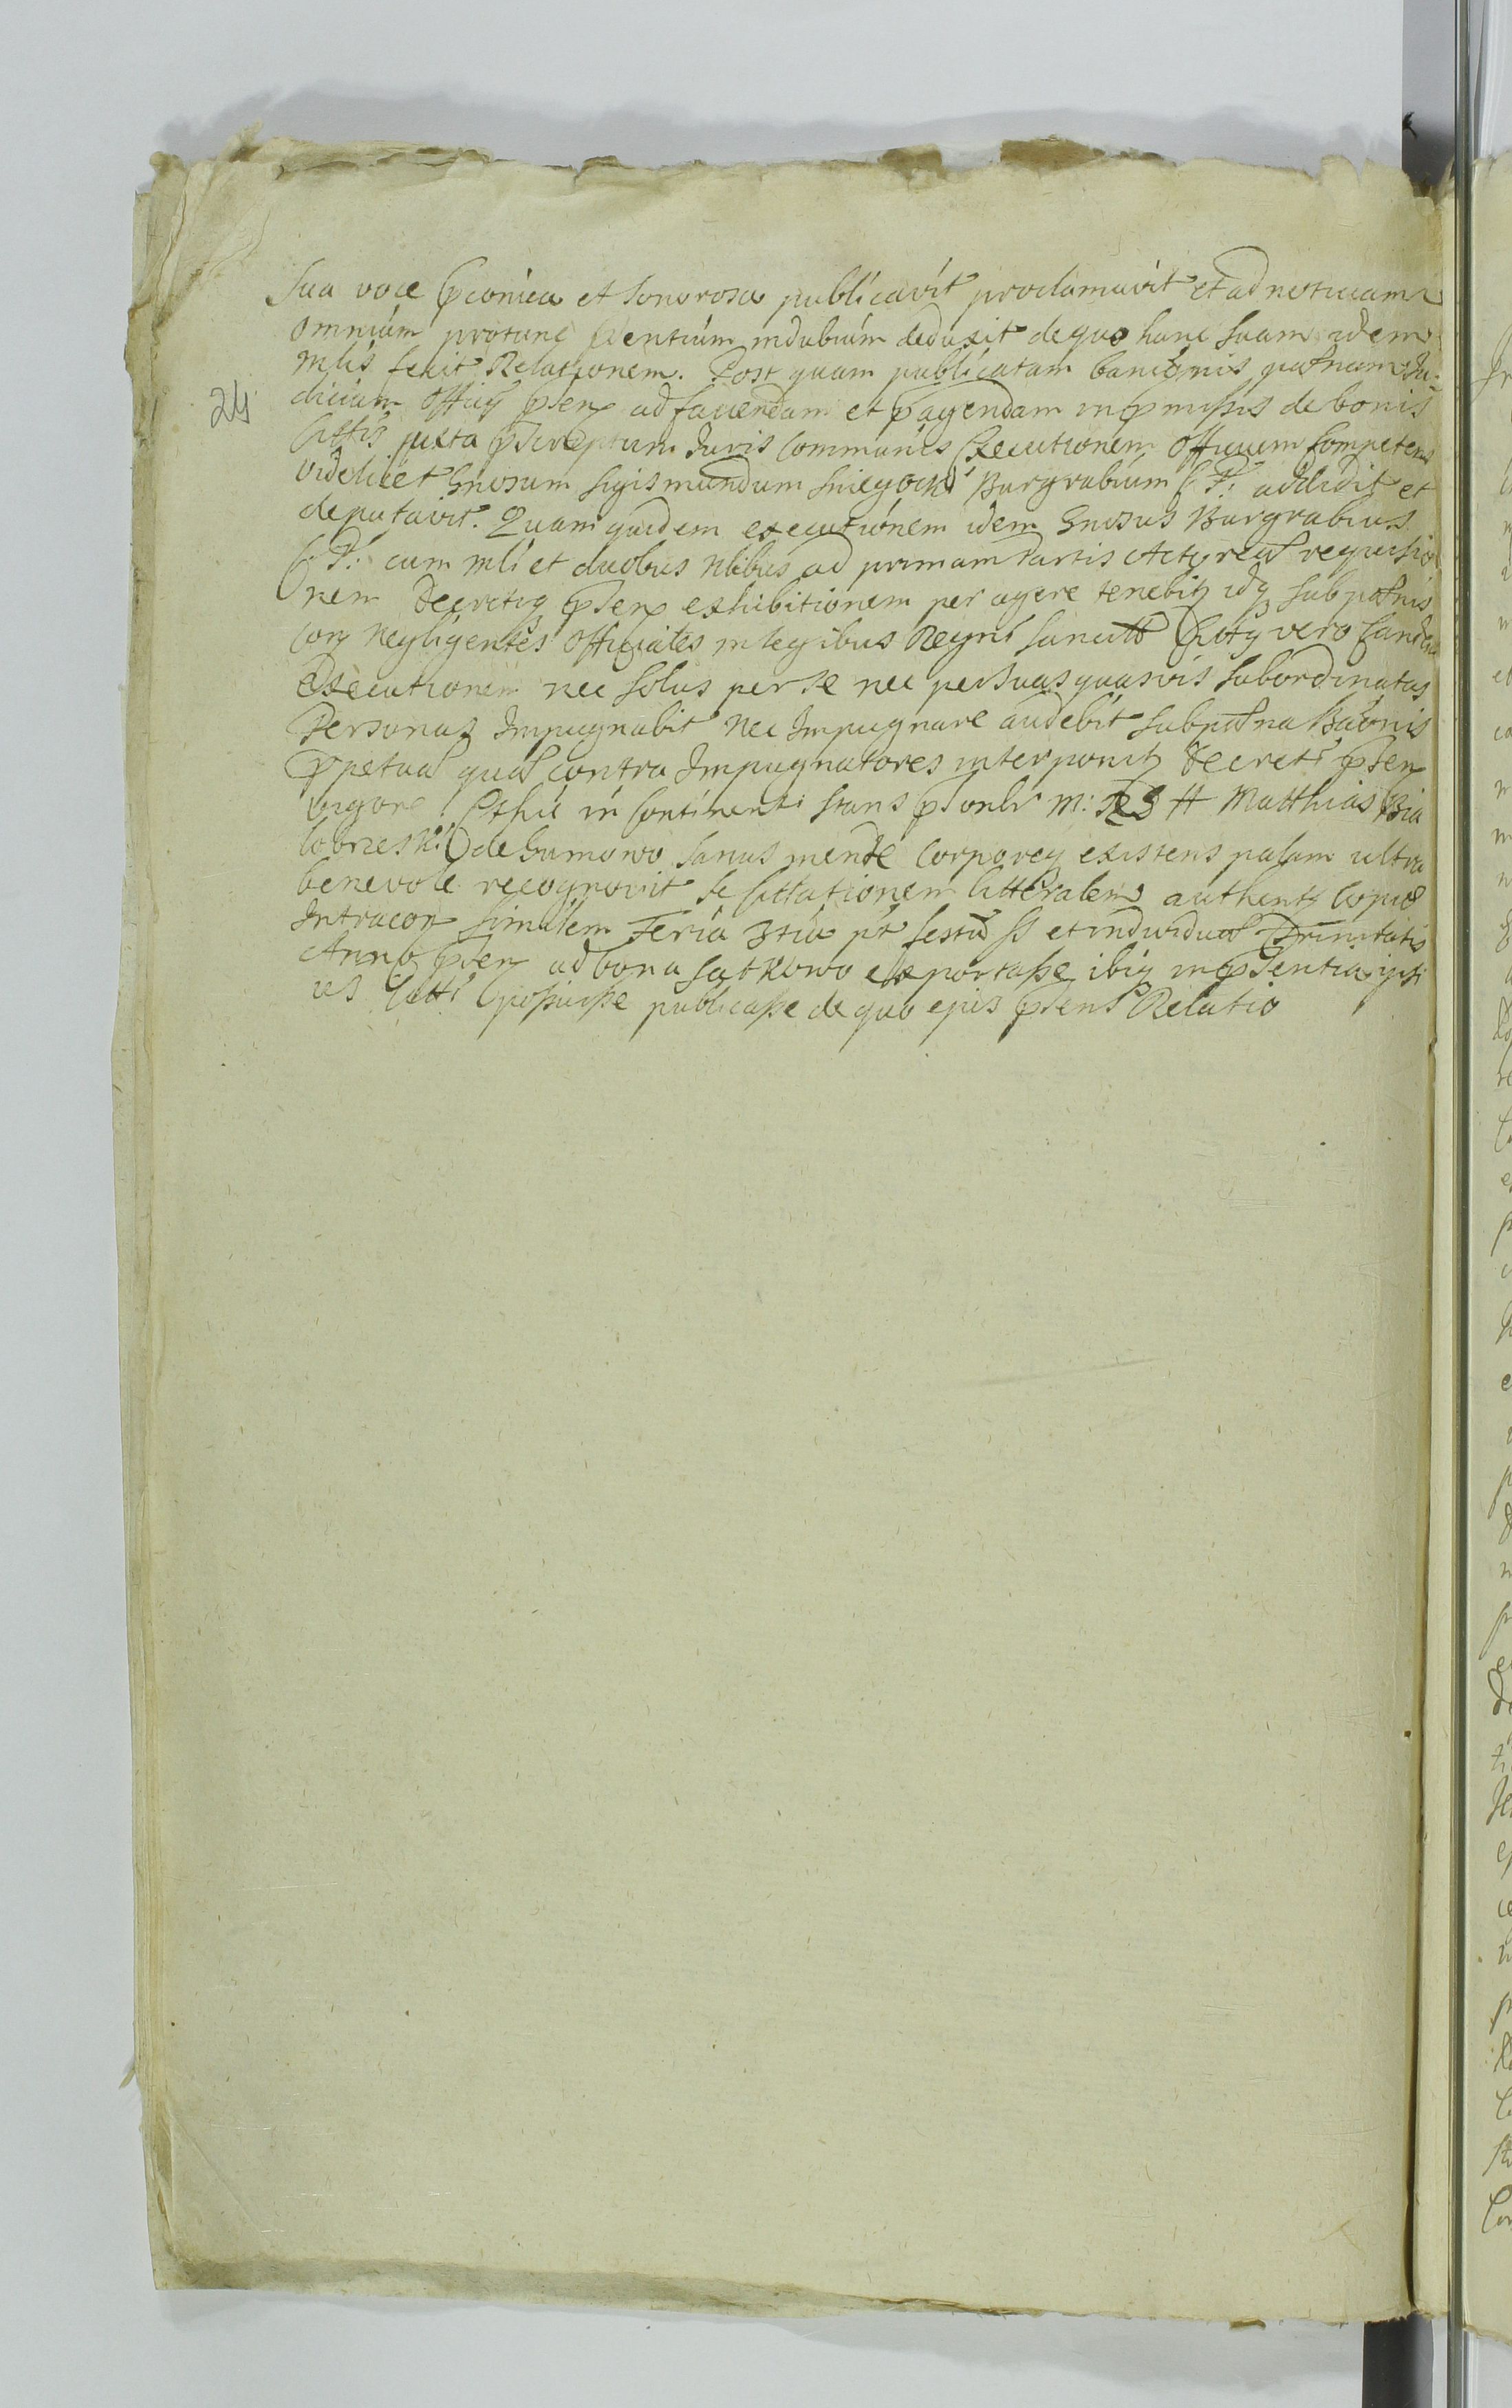 Sua voce pconica et sonorosa publicavit proclamavit et ad notitiam
omnium protunc sentium indubium deduxit de quo hanc suam idem
mlis fecit Relationem. Post quam publicatam banionis paenam Ju-
24
dicium officy psens ad faciendam et pagendam in pmissis de bonis
Cittis juxta pscriptum Juris Communis Executionem officium Competens
videlicet Gnosum Sigismundum Burgrabium C P: addidit et
deputavit. Quam quidem executionem idem Gnosus Burgrabius
C P: cum mli et duobus nlibus ad primam Partis Actoreae requisitio
nem Decretiq psens exhibitionem peragere tenebit idq sub paenis
con negligentes officiales in legibus Regni Citty vero eandem
Executionem nec solus per se nec per suas quasvis subordinatas
Personas Impugnabit nec Impugnare audebit sub paena Banonis
Ppetuae quae contra Impugnatores interponit Decreti psens
vigore Et hic in Continenti stans psonlr M: R S H Matthias Bia
lobrzeski de Gumowo sanus mente corporeq existens palam ultro
benevole recognovit se Cittationem litteralem authent Copiae
Intracon similem Feria 3tia pt festum S et individuae Trinitatis
Anno psen ad bona exportasse ibiq in psentia ipsi
us Citti posuisse publicasse de quo ejus psens Relatio